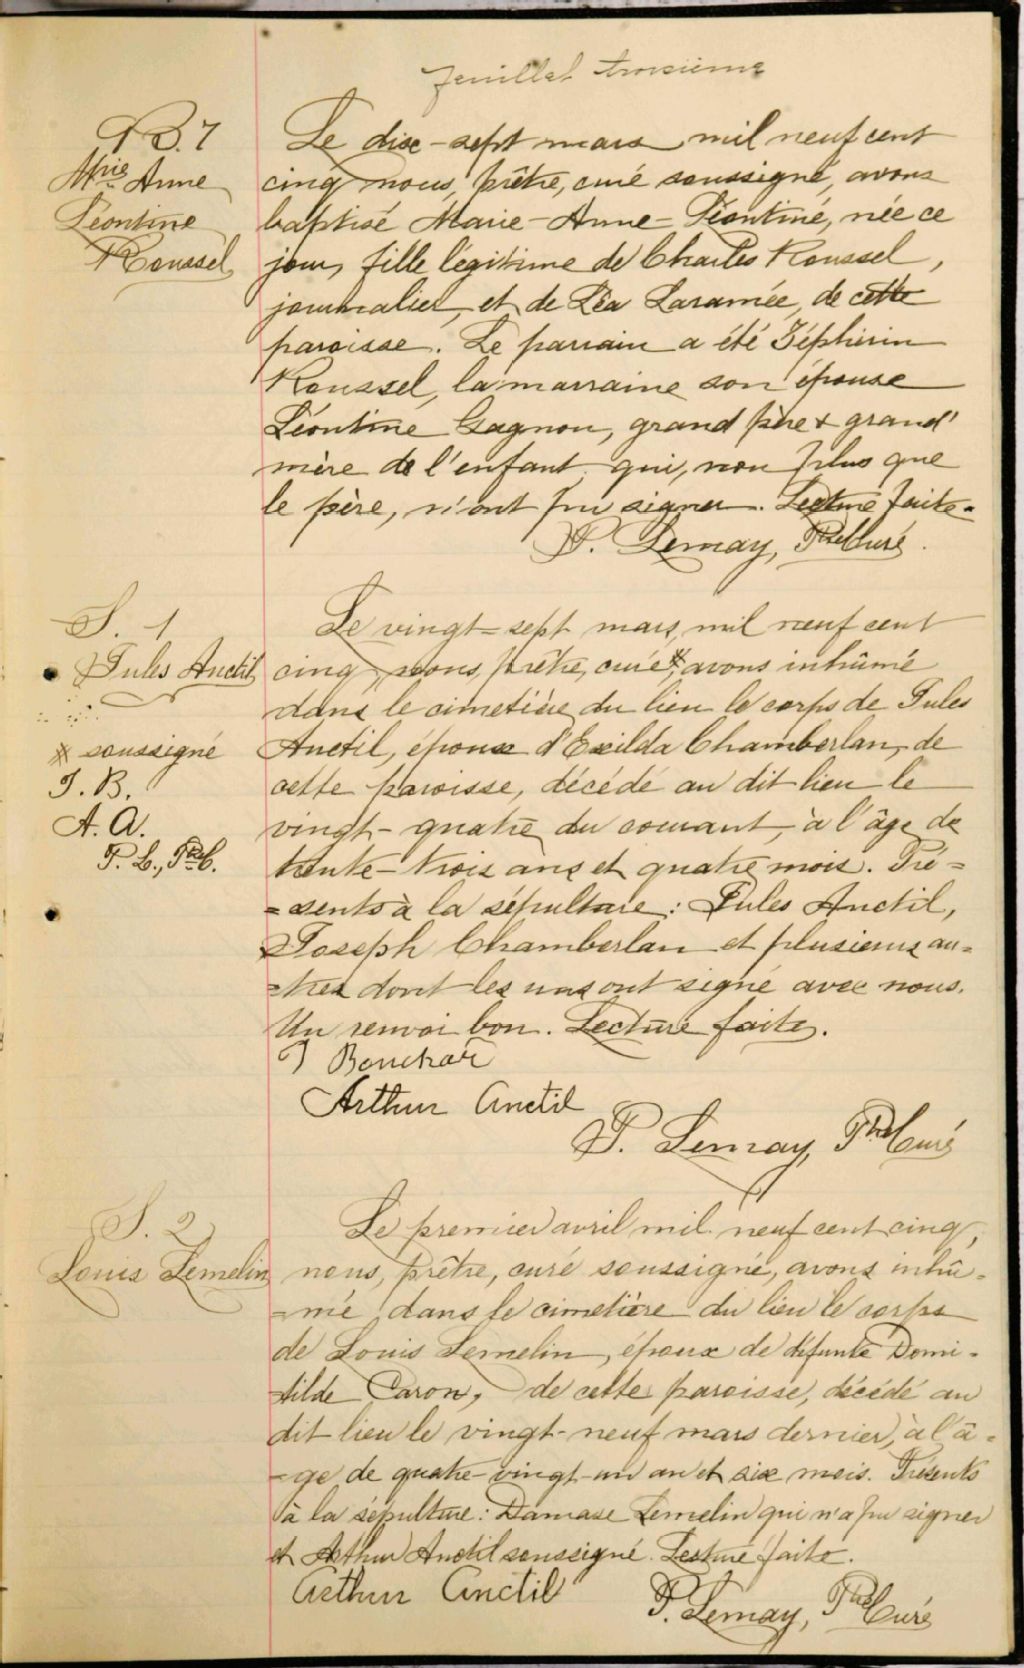 Feuillet troisième
B. 7
Mrie Anne
Léontine
Roussel
Le dix-sept mars mil neuf cent
cinq nous, prêtre, curé soussigné, avons
baptisé Marie-Anne-Léontine, née ce
jour, fille légitime de Charles Roussel,
journalier, et de Léa Laramée, de cette
paroisse. Le parrain a été Zéphirin
Roussel, la marraine son épouse
Léontine Gagnon, grand père & grand'
mère de l'enfant qui, non plus que
le père, n'ont pu signer. Lecture faite.
P. Lemay, Ptre Curé.
S. 1
Jules Anctil
※ soussigné
J. B.
A. A.
P. L., Ptre C.
Le vingt-sept mars, mil neuf cent
cinq, nous, prêtre, curé ※, avons inhumé
dans le cimetière du lieu le corps de Jules
Anctil, époux d'Exilda Chamberlan, de
cette paroisse, décédé au dit lieu le
vingt-quatre du courant, à l'âge de
trente-trois ans et quatre mois. Pré=
=sents à la sépulture: Jules Anctil,
Joseph Chamberlan et plusieurs au=
=tres dont les uns ont signé avec nous.
Un renvoi bon. Lecture faite.
J Bouchar
Arthur Anctil
P. Lemay, Ptre Curé
S. 2
Louis Lemelin
Le premier avril mil neuf cent cinq,
nous, prêtre, curé soussigné, avons inhu=
=mé dans le cimetière du lieu le corps
de Louis Lemelin, époux de défunte Domi-
tilde Caron, de cette paroisse, décédé au
dit lieu le vingt-neuf mars dernier, à l'â=
=ge de quatre-vingt-un an et six mois. Présents
à la sépulture: Damase Lemelin qui n'a pu signer
et Arthur Anctil soussigné. Lecture faite.
Arthur Anctil
P. Lemay, Ptre Curé